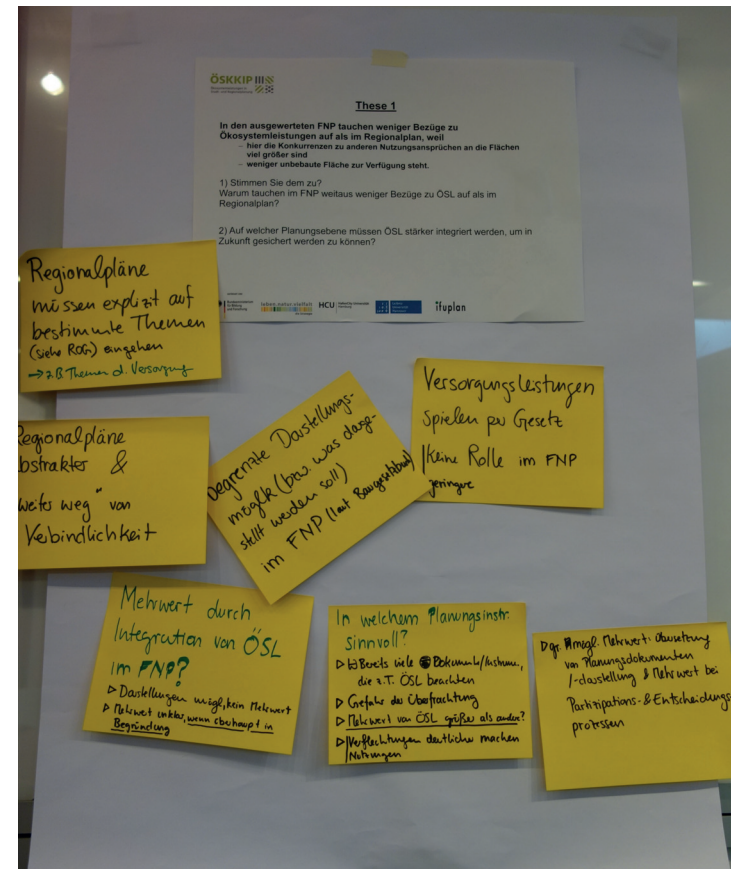 ÖSKKIP
These 1
In den ausgewerteten FNP tauchen weniger Bezüge zu
Ökosystemleistungen auf als im Regionalplan, weil
- hier die Konkurrenzen zu anderen Nutzungsansprüchen an die Flächen
viel größer sind
- weniger unbebaute Fläche zur Verfügung steht.
1) Stimmen Sie dem zu?
Warum tauchen im FNP weitaus weniger Bezüge zu ÖSL auf als im
Regionalplan?
2) Auf welcher Planungsebene müssen ÖSL stärker integriert werden, um in
Zukunft gesichert werden zu können?
leben.natur.vielfalt
HCU
ifuplan
Regionalpläne
müssen explizit auf
bestimmte Themen
(siehe ROG) eingehen
→ z.B. Themen d. Versorgung
Versorgungsleistungen
spielen per Gesetz
/Keine Rolle im FNP
geringere
Regionalpläne
abstrakter &
weiter weg" von
Verbindlichkeit
Begrenzte Darstellungs-
möglk (bzw. was darge-
stellt werden soll)
im FNP (laut Baugesetzbuch)
Mehrwert durch
Integration von ÖSL
im FNP?
▷ Darstellungen mögl, kein Mehrwert
▷ Mehrwert unklar, wenn überhaupt in
Begründung
In welchem Planungsinstr.
sinnvoll?
▷ Bereits viele Dokumente/Instrum.,
die z.T. ÖSL beachten
▷ Gefahr der Überfrachtung
▷ Mehrwert von ÖSL größer als andere?
▷ Verflechtungen deutlicher machen
/Nutzungen
▷ gr. mögl. Mehrwert: Übersetzung
von Planungsdokumenten
/-darstellung & Mehrwert bei
Partizipations- & Entscheidungs-
prozessen